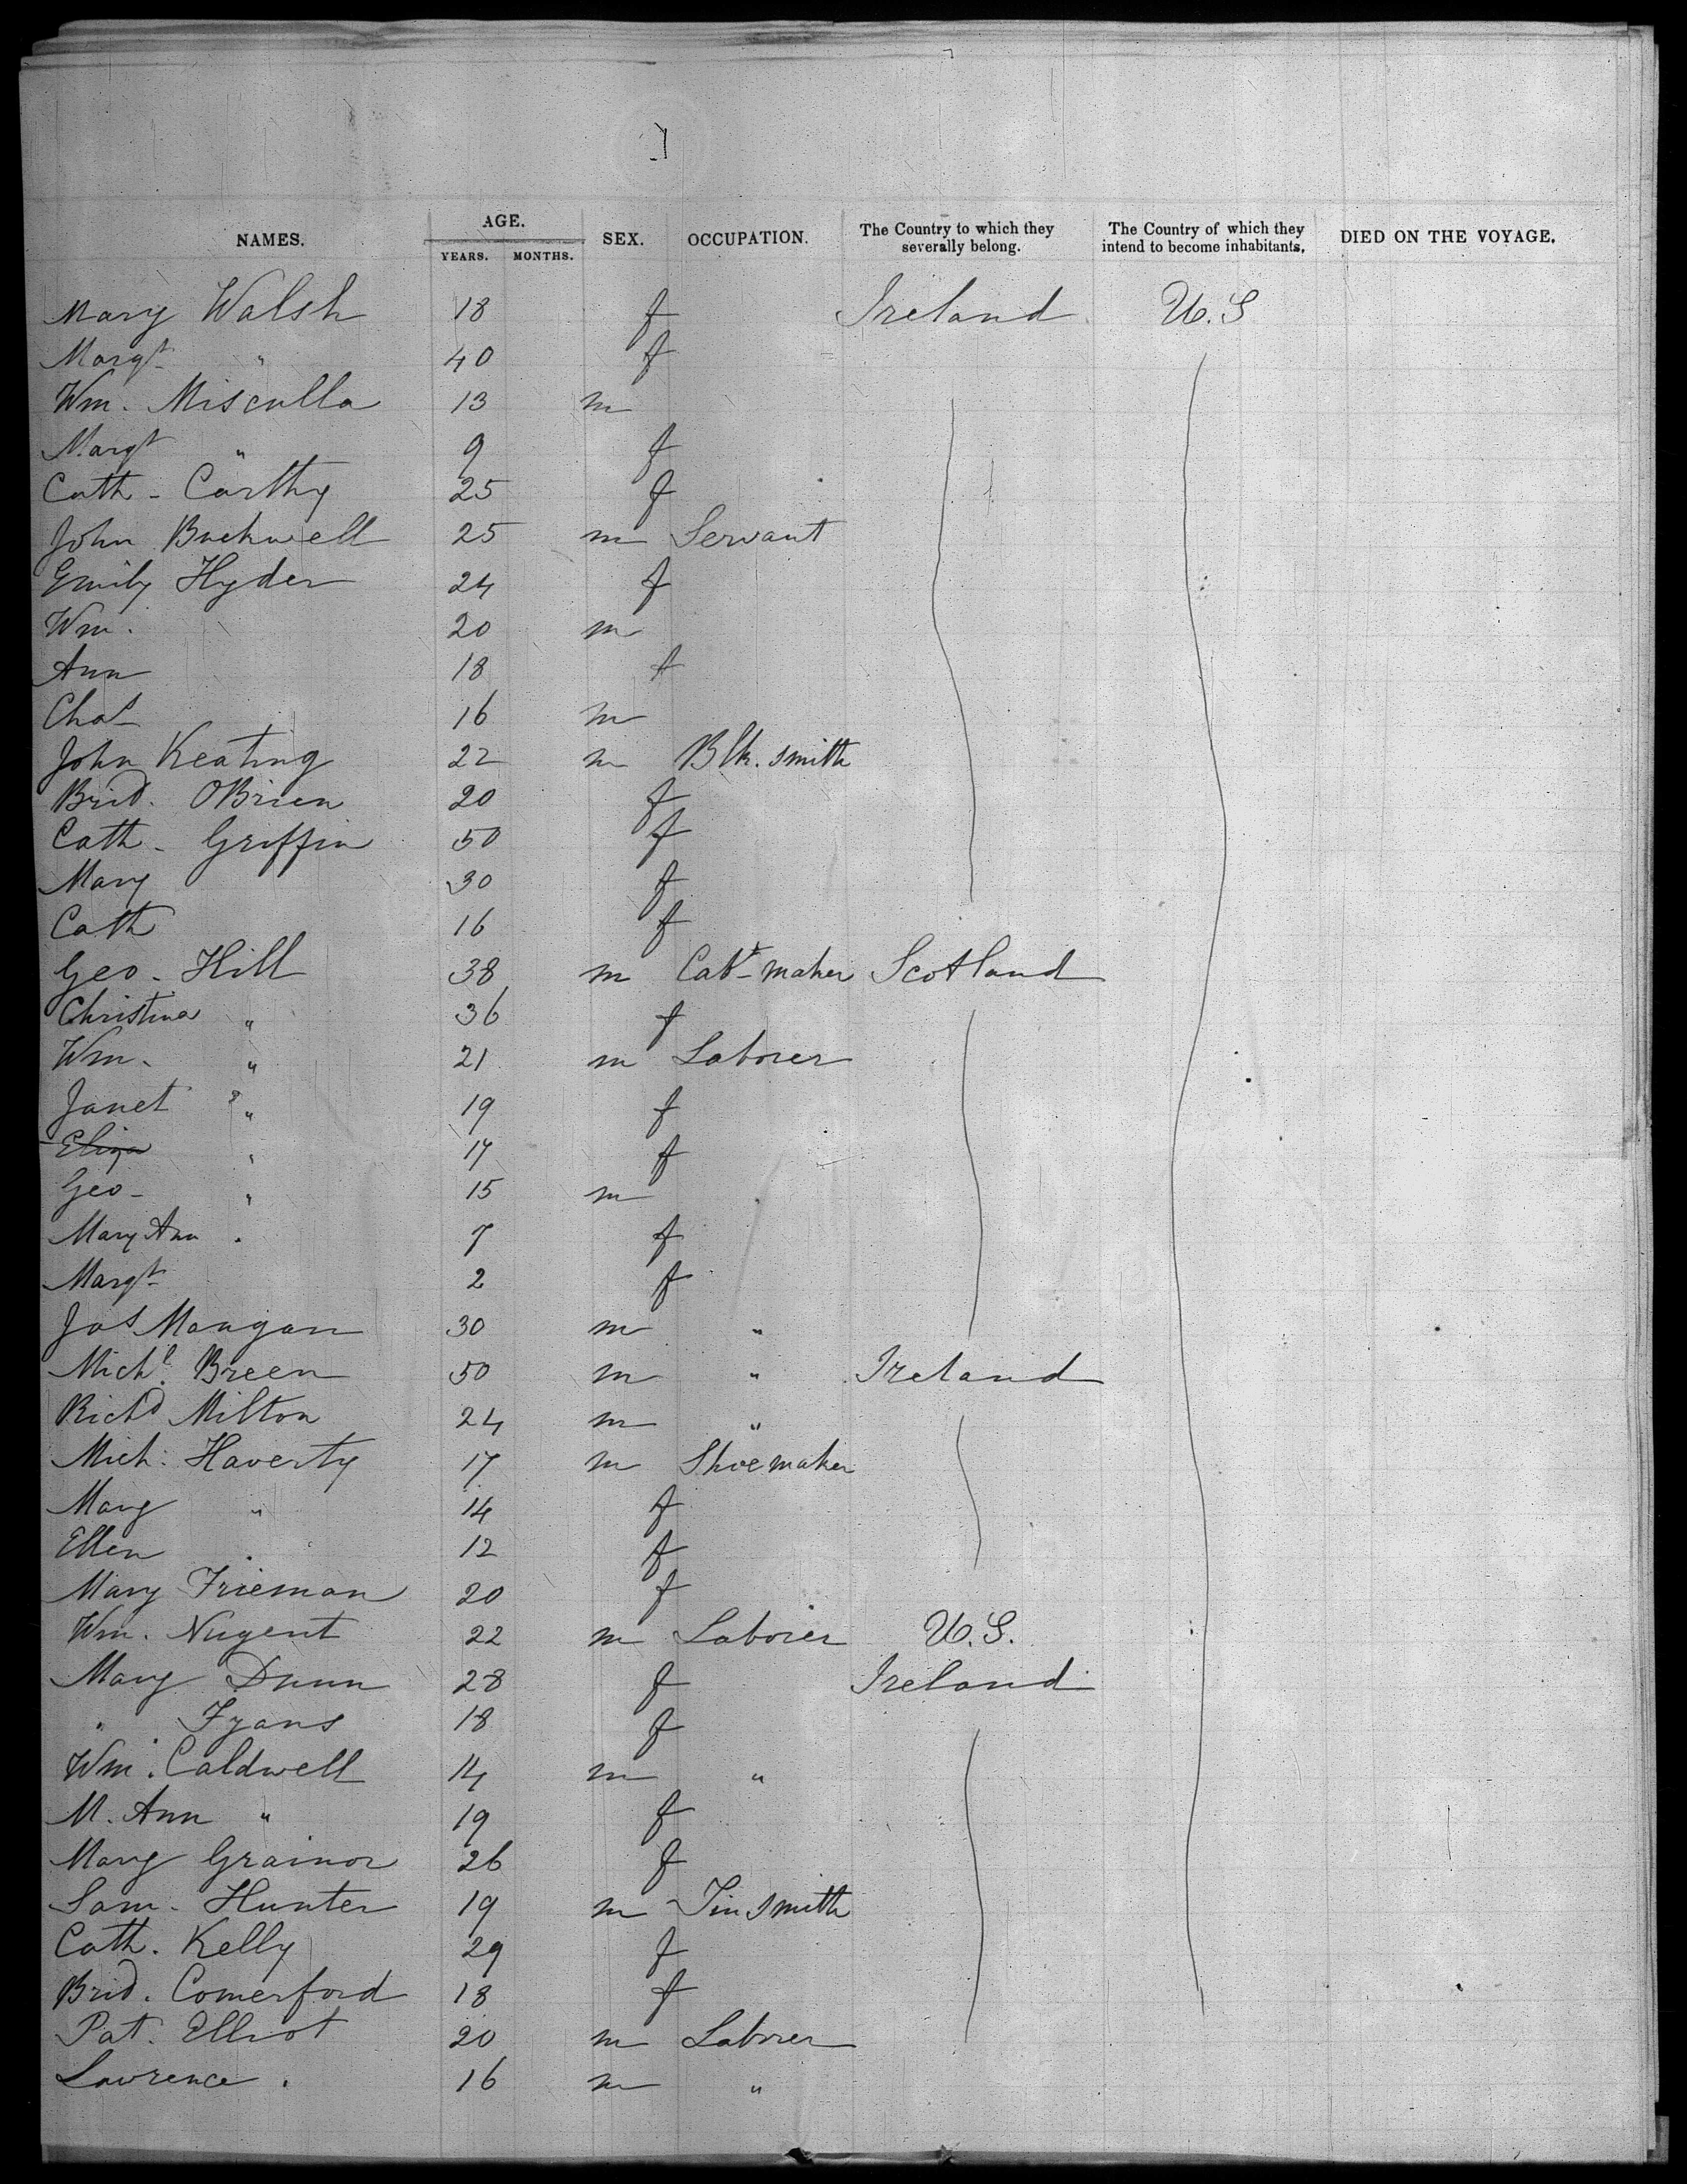 NAMES. AGE. YEARS. MONTHS. SEX. OCCUPATION. The Country to which they severally belong. The Country of which they intend to become inhabitants. DIED ON THE VOYAGE.
Mary Walsh 18 f Ireland U.S
Margt " 40 f
Wm. Misculla 13 m
Margt " 9 f
Cath - Carthy 25 f
John Buckwell 25 m Servant
Emily Hyder 24 f
Wm. 20 m
Ann 18 f
Chas 16 m
John Keating 22 m Blk. smith
Brid. OBrien 20 f
Cath - Griffin 50 f
Mary 30 f
Cath 16 f
Geo - Hill 38 m Cabt - maker Scotland
Christina " 36 f
Wm. " 21 m Laborer
Janet " 19 f
Eliza " 17 f
Geo - " 15 m
Mary Ann " 7 f
Margt 2 f
Jas Mangan 30 m "
Michl. Breen 50 m " Ireland
Richd Milton 24 m "
Mich: Haverty 17 m Shoemaker
Mary " 14 f
Ellen 12 f
Mary Frieman 20 f
Wm. Nugent 22 m Laborer U.S.
Mary Dunn 28 f Ireland
" Fyans 18 f
Wm. Caldwell 14 m "
M. Ann " 19 f
Mary Grainor 26 f
Sam. Hunter 19 m Tinsmith
Cath. Kelly 29 f
Brid. Comerford 18 f
Pat. Elliot 20 m Laborer
Lawrence . 16 m "